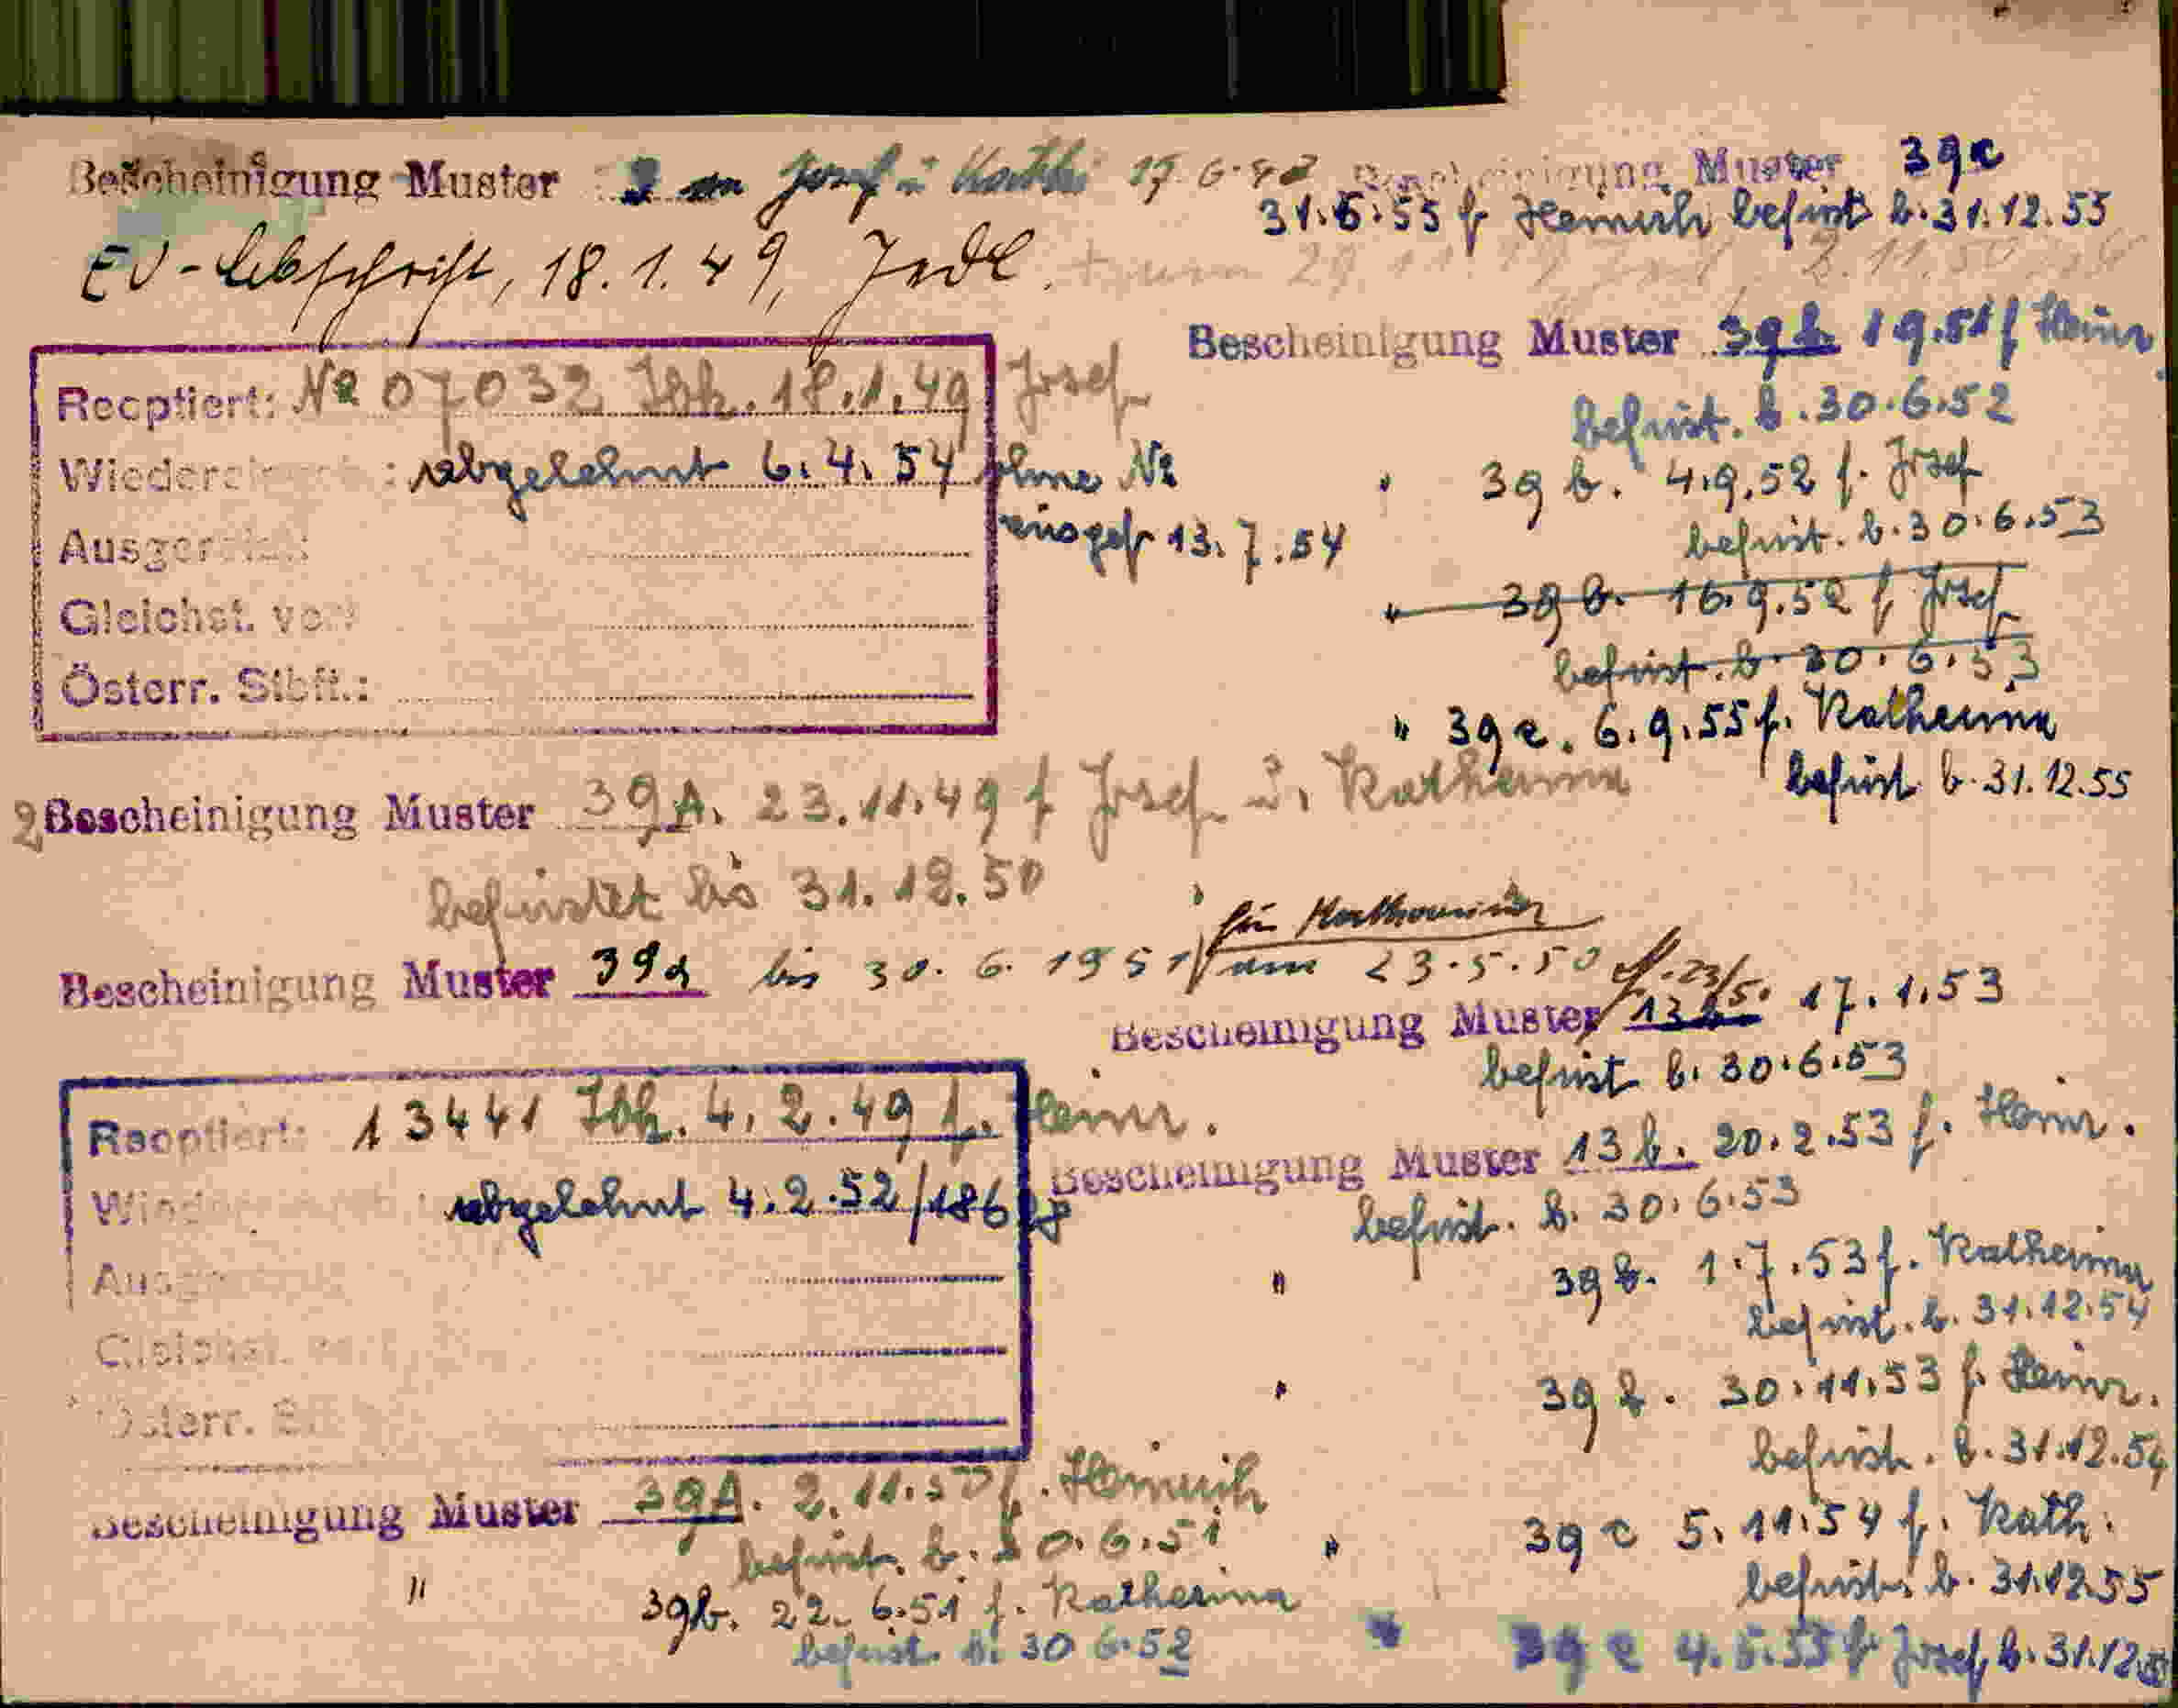 Bescheinigung Muster 3 an Josef u Kathi 17.6.48
EV-Abschrift, 18.1.49, Jedl.
Reoptiert: № 07032 Ibk. 18.1.49 Josef
abgelehnt 6.4.54 ohne №
ausgef 13.7.54
Gleichst.
Österr. Stbft.:
2 Bescheinigung Muster 39A. 23.11.49 f Josef u. Katherina
befristet bis 31.12.50
für Katharina
Bescheinigung Muster 39a bis 30.6.1951 am 23.5.50
Reoptiert: 13441 Ibk. 4.2.49 f. Heinr.
abgelehnt 4.2.52/186
Österr.
Bescheinigung Muster 39A. 2.11.50 f. Heinrich
befrist. b. 30.6.51
" 39b. 22.6.51 f. Katherina
befrist. b. 30 6.52
Bescheinigung Muster 39c
31.5.55 f Heinrich befrist b. 31.12.55
Bescheinigung Muster 39b 1 9.51 f Heinr.
befrist. b. 30.6.52
39 b. 4.9.52 f. Josef
befrist. b. 30.6.53
" 39 b. 16.9.52 f Josef
befrist. b. 30.6.53
" 39 c. 6.9.55 f. Katherina
befrist b. 31.12.55
Bescheinigung Muster 13b 17.1.53
befrist b. 30.6.53
Bescheinigung Muster 13 b. 20.2.53 f. Heinr.
befrist. b. 30.6.53
" 39 b. 1.7.53 f. Katherina
befrist. b. 31.12.54
" 39 b. 30.11.53 f. Heinr.
befrist. b. 31.12.54
" 39 c 5.11.54 f. Kath.
befrist. b. 31.12.55
" 39 c 4.5.55 f Josef, b. 31.12.55